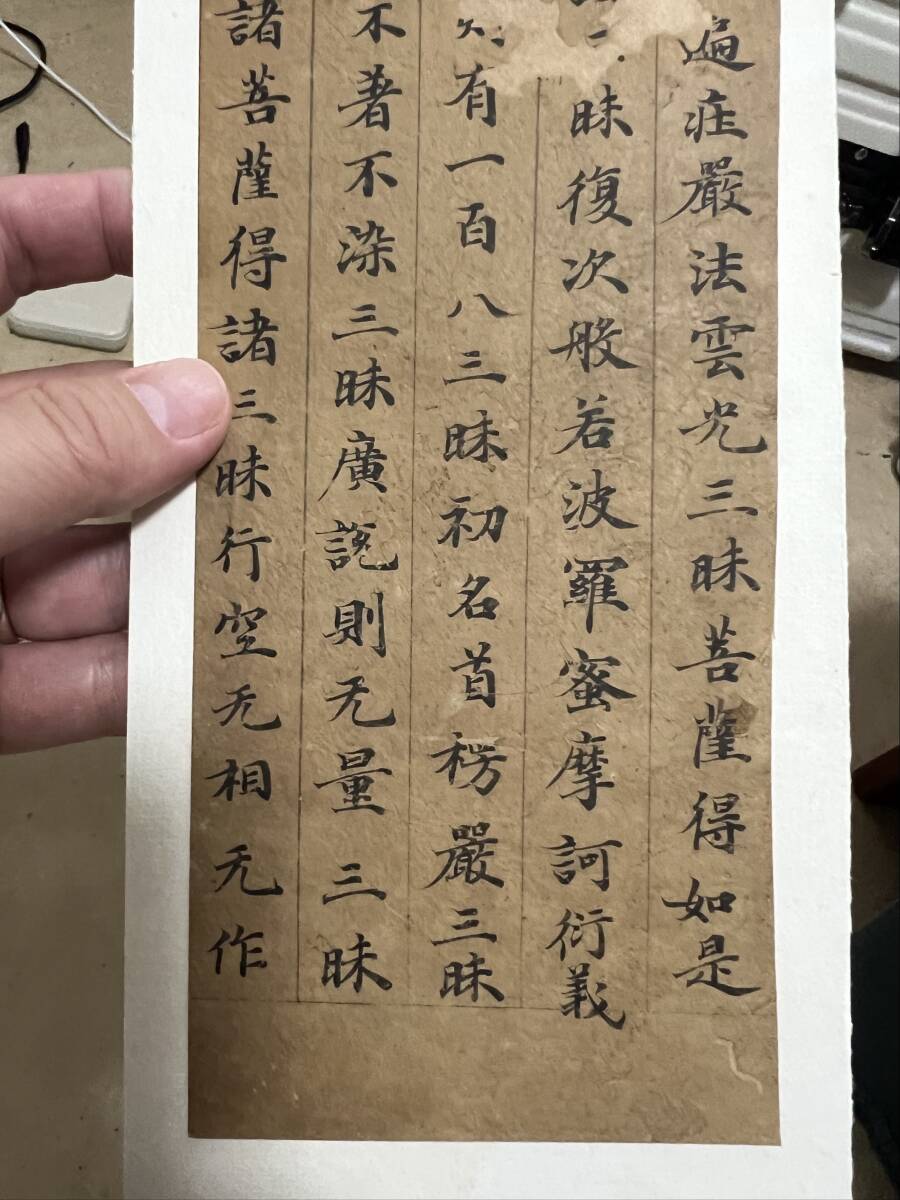 遍疰嚴法雲光三昧菩薩得如是
三昧復次般若波羅蜜摩訶衍義
有一百八三昧初名首楞嚴三昧
不著不染三昧廣說則无量三昧
諸菩薩得諸三昧行空无相无作